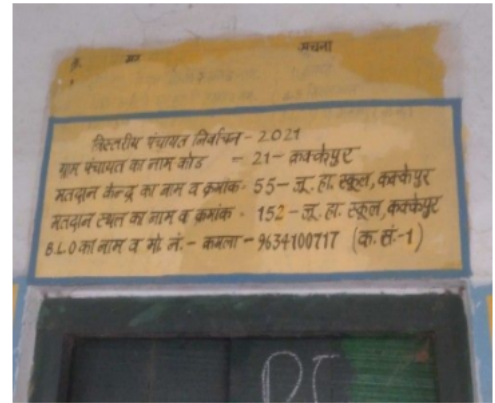 सूचना
त्रिस्तरीय पंचायत निर्वाचन - 2021
ग्राम पंचायत का नाम कोड - 21- क्रक्केपुर
मतदान केन्द्र का नाम व क्रमांक- 55- जू. हा. स्कूल, कक्केपुर
मतदान स्थल का नाम व क्रमांक - 152- जू. हा. स्कूल, कक्केपुर
B.L.O का नाम व मो. नं. - कमला - 9634100717 (क.सं.-1)